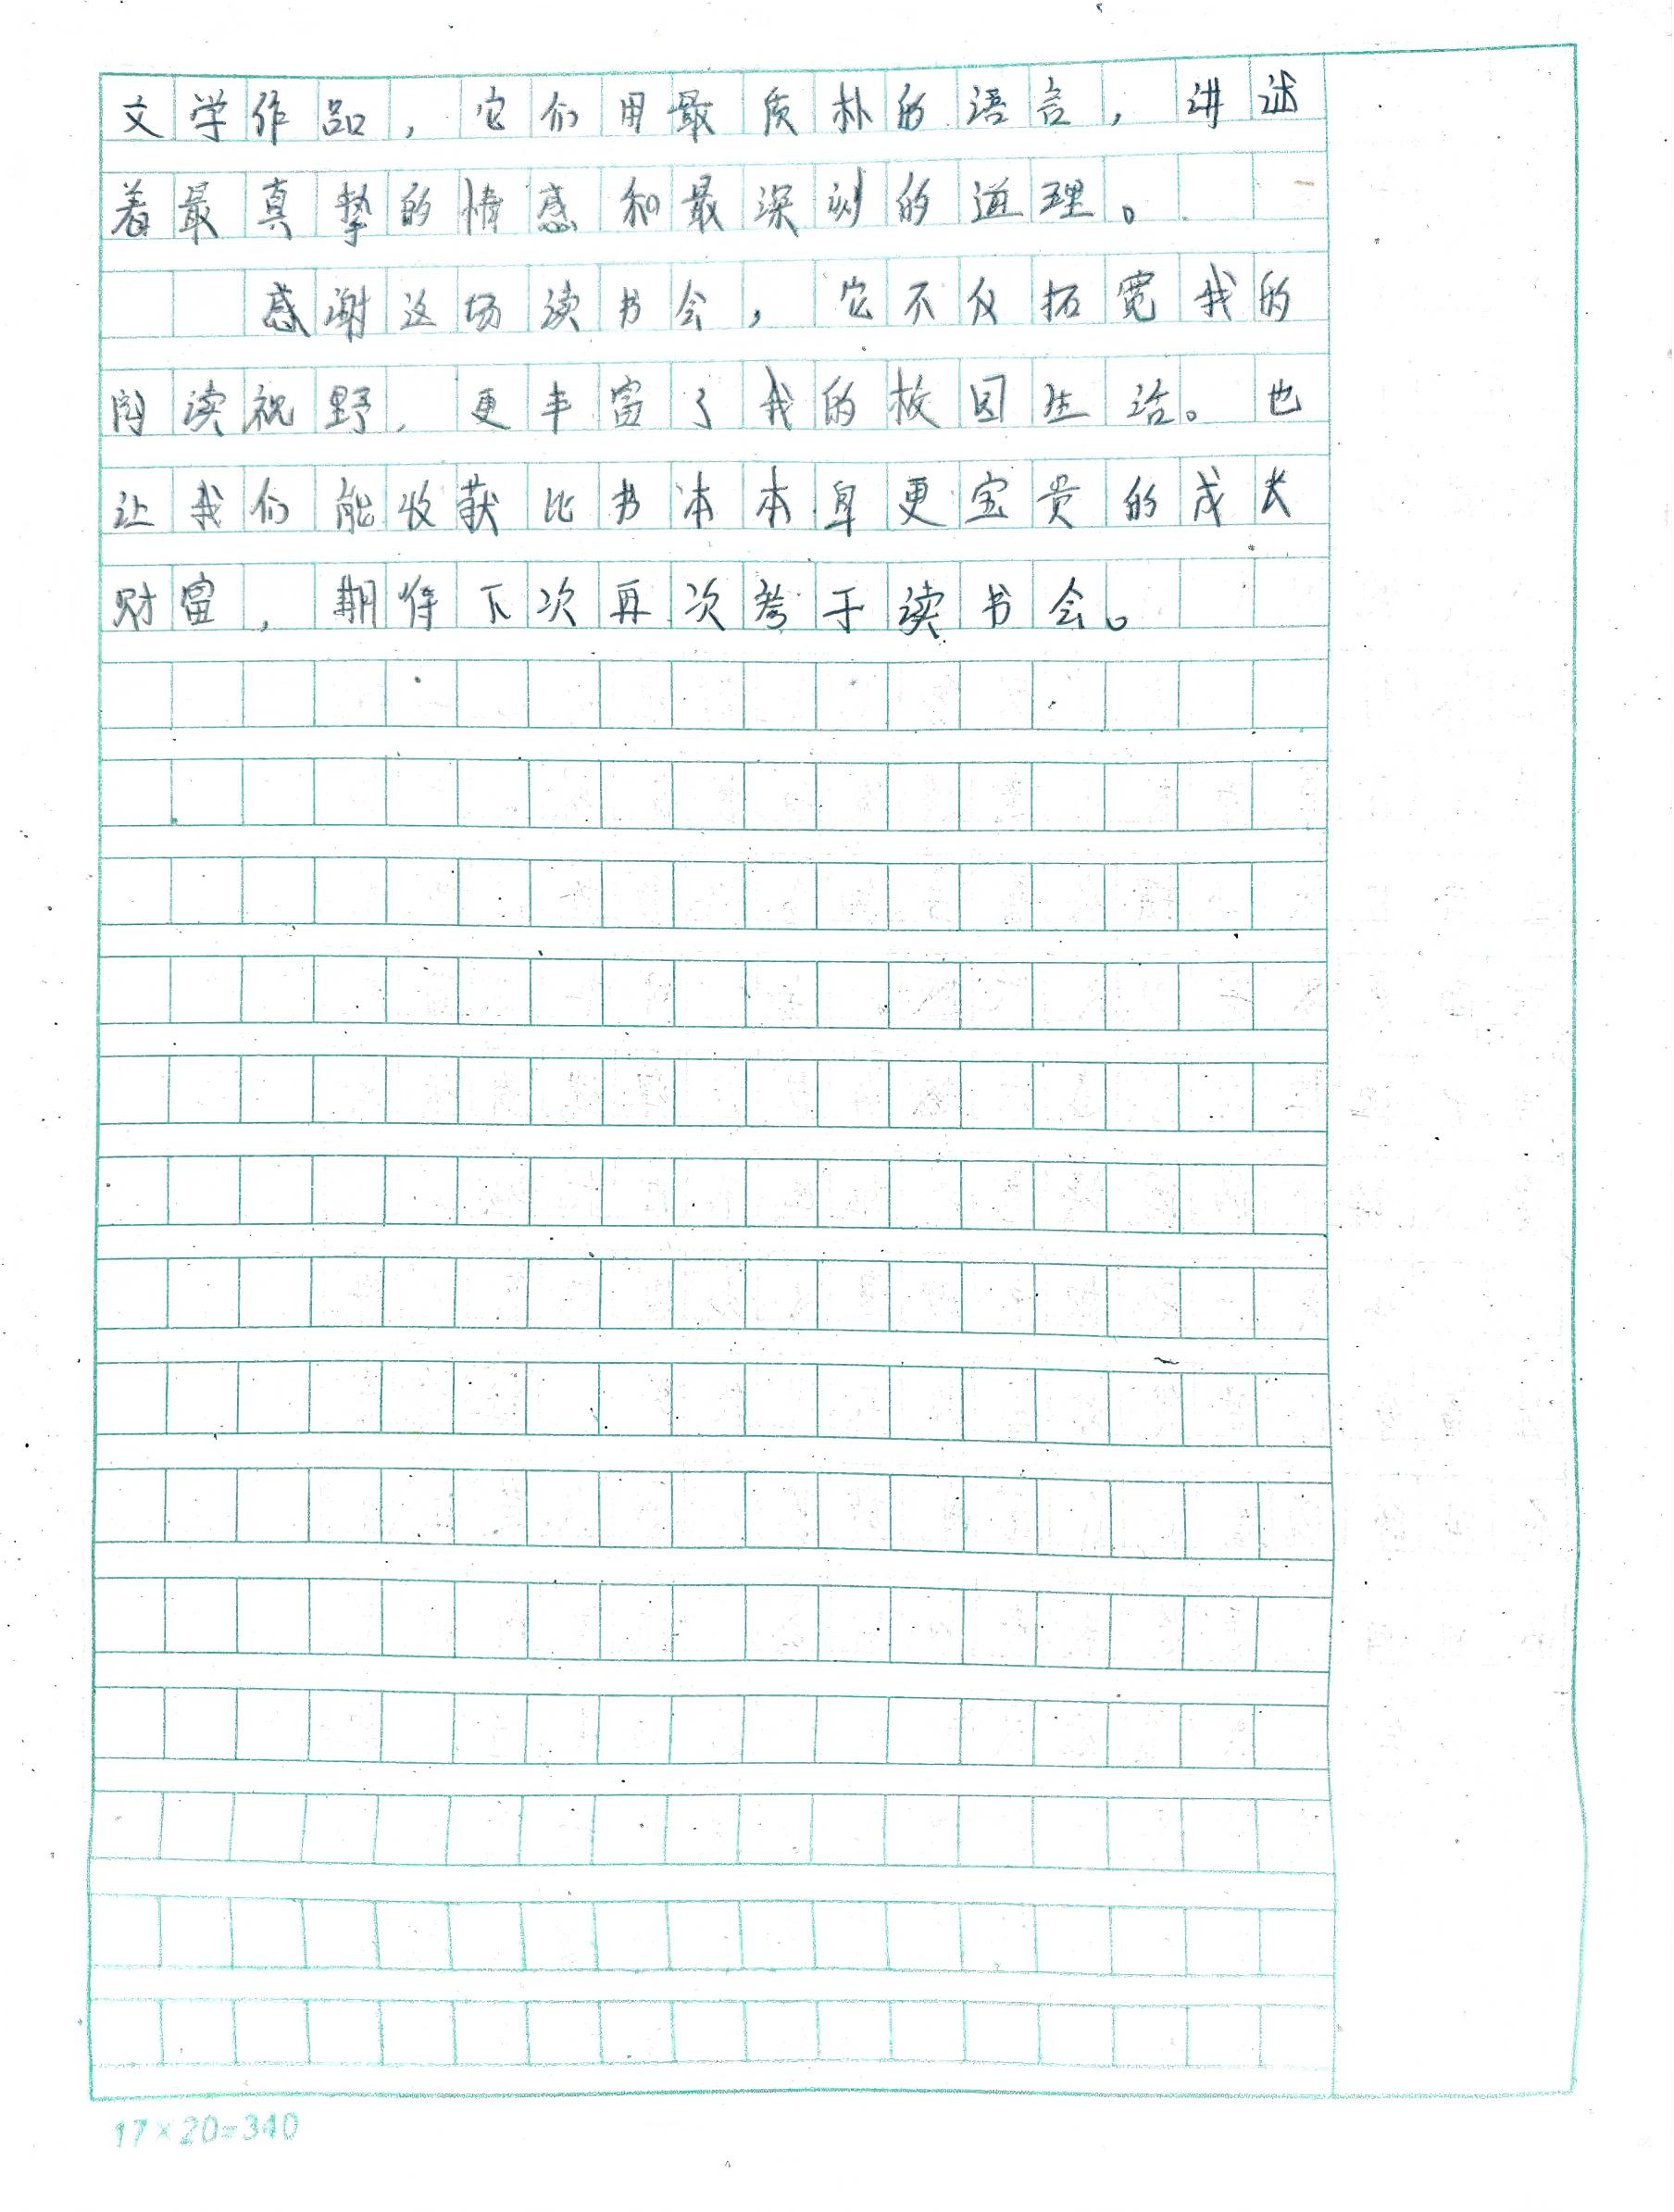 文学作品，它们用最质朴的语言，讲述
着最真挚的情感和最深刻的道理。
感谢这场读书会，它不仅拓宽我的
阅读视野，更丰富了我的校园生活。也
让我们能收获比书本本身更宝贵的成长
财富，期待下次再次参于读书会。
17×20=340